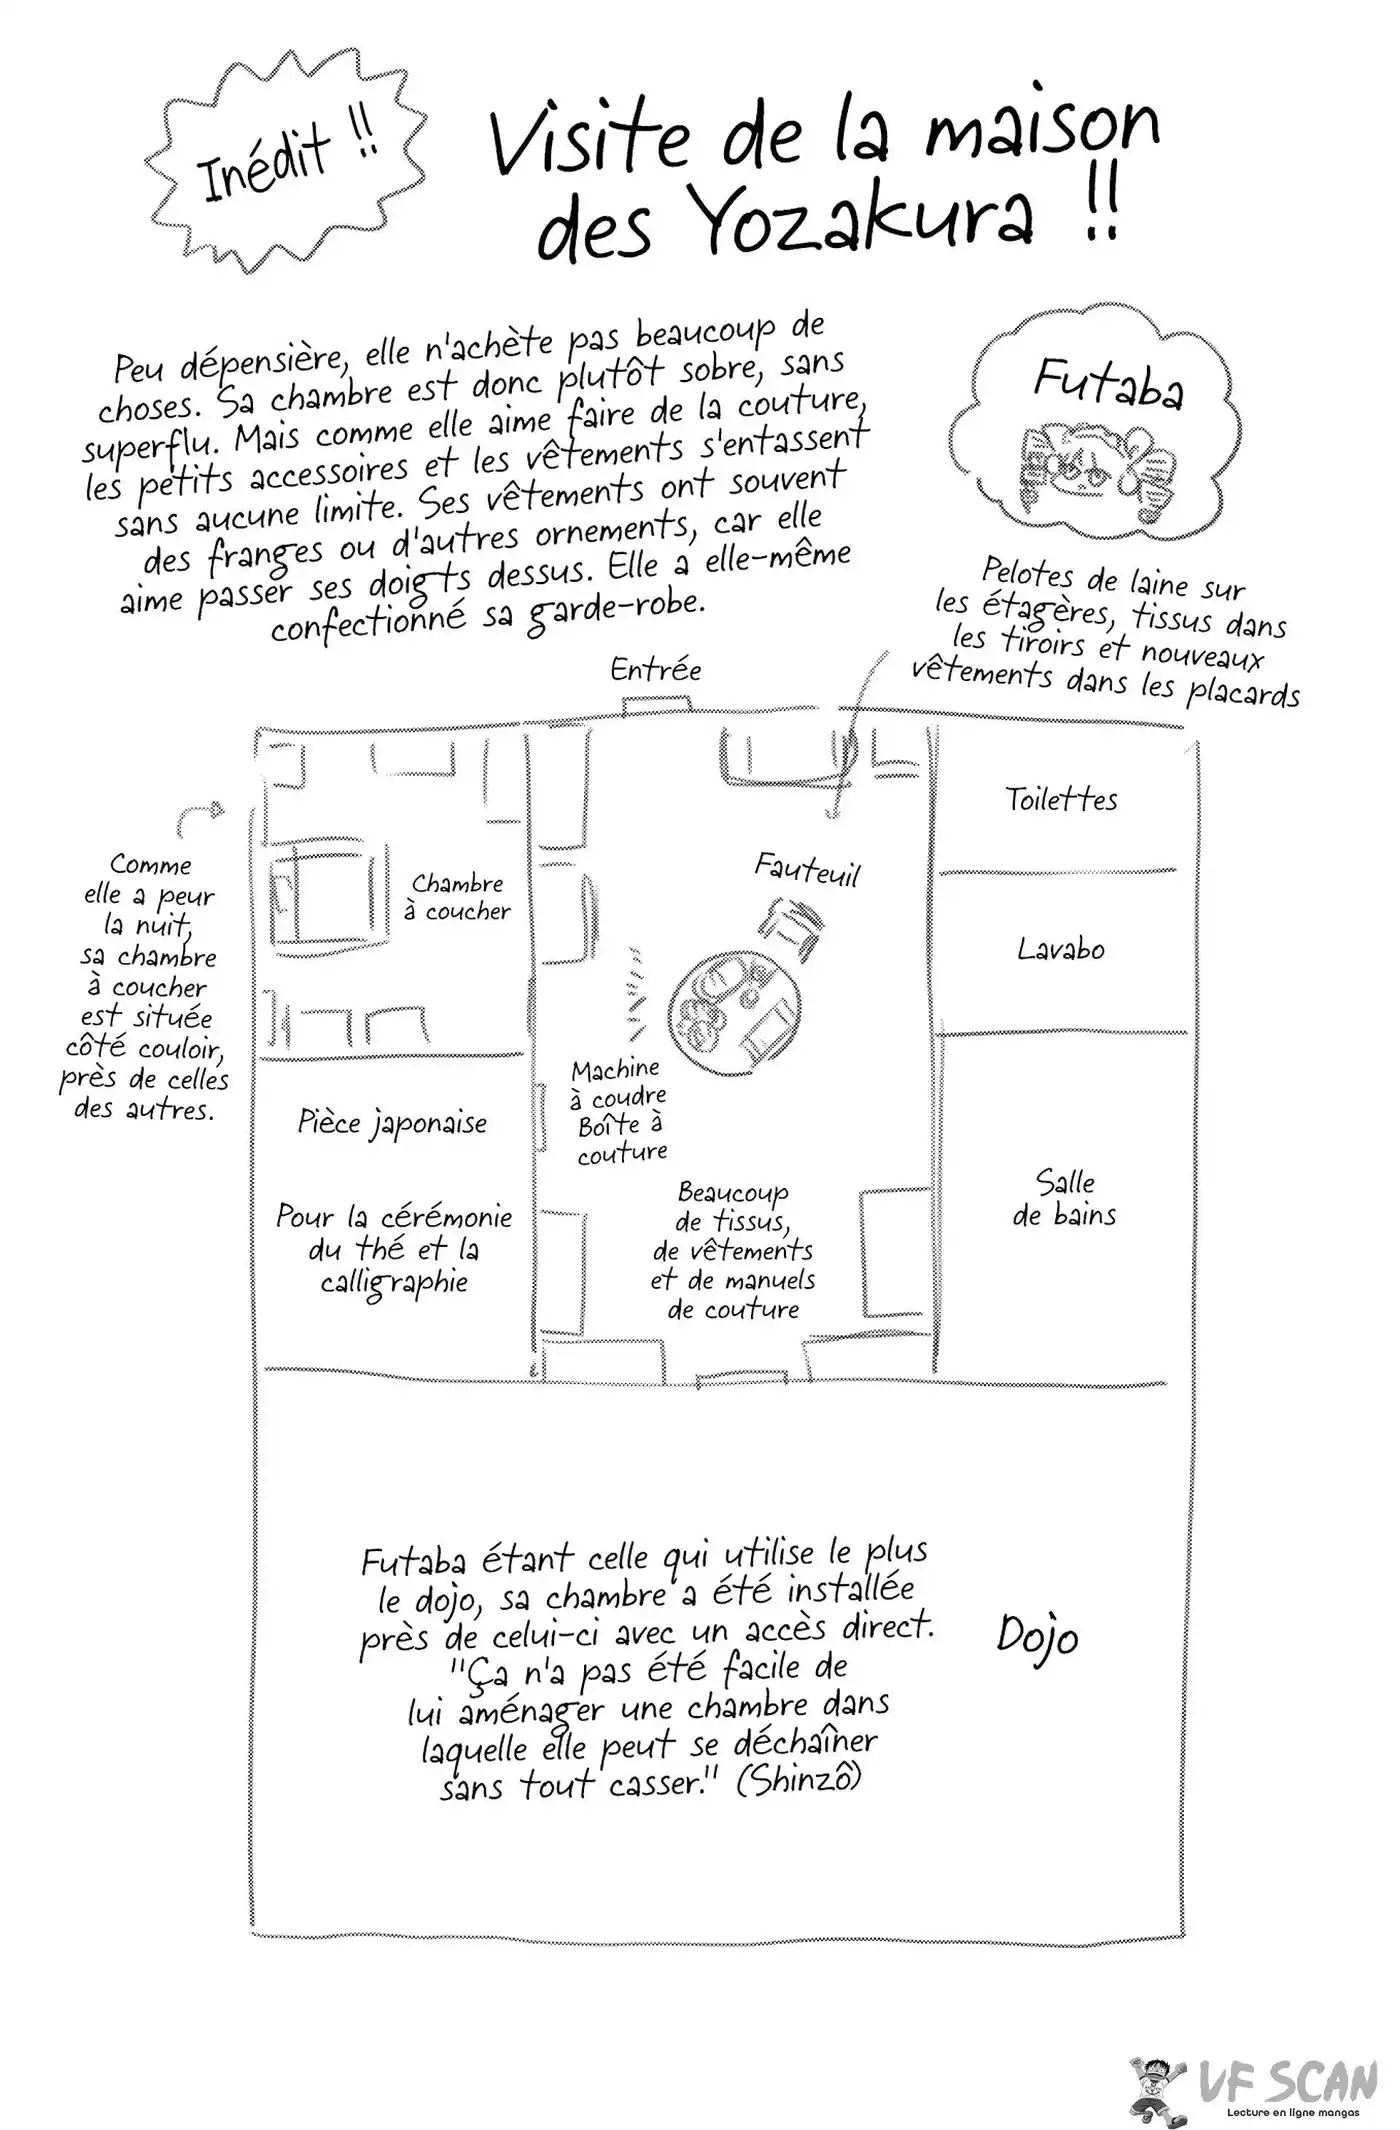 Inédit !!
Visite de la maison
des Yozakura !!
Peu dépensière, elle n'achète pas beaucoup de
choses. Sa chambre est donc plutôt sobre, sans
superflu. Mais comme elle aime faire de la couture,
les petits accessoires et les vêtements s'entassent
sans aucune limite. Ses vêtements ont souvent
des franges ou d'autres ornements, car elle
aime passer ses doigts dessus. Elle a elle-même
confectionné sa garde-robe.
Futaba
Pelotes de laine sur
les étagères, tissus dans
les tiroirs et nouveaux
vêtements dans les placards
Entrée
Comme
elle a peur
la nuit,
sa chambre
à coucher
est située
côté couloir,
près de celles
des autres.
Chambre
à coucher
Fauteuil
Toilettes
Lavabo
Machine
à coudre
Boîte à
couture
Pièce japonaise
Pour la cérémonie
du thé et la
calligraphie
Beaucoup
de tissus,
de vêtements
et de manuels
de couture
Salle
de bains
Futaba étant celle qui utilise le plus
le dojo, sa chambre a été installée
près de celui-ci avec un accès direct.
"Ça n'a pas été facile de
lui aménager une chambre dans
laquelle elle peut se déchaîner
sans tout casser." (Shinzô)
Dojo
VF SCAN
Lecture en ligne mangas